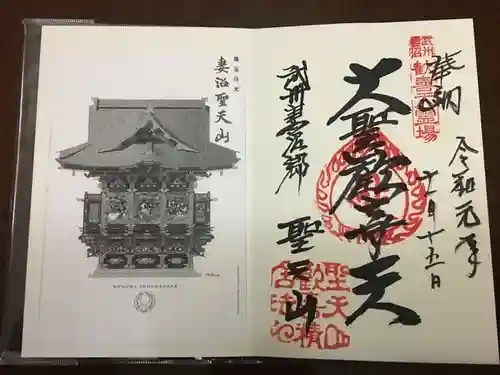 埼玉日光
妻沼聖天山
MENUMA SHODENZAN
奉納
令和元年
十一月十五日
武州
妻沼
大聖歓喜天
武州妻沼郷
聖天山
聖天山